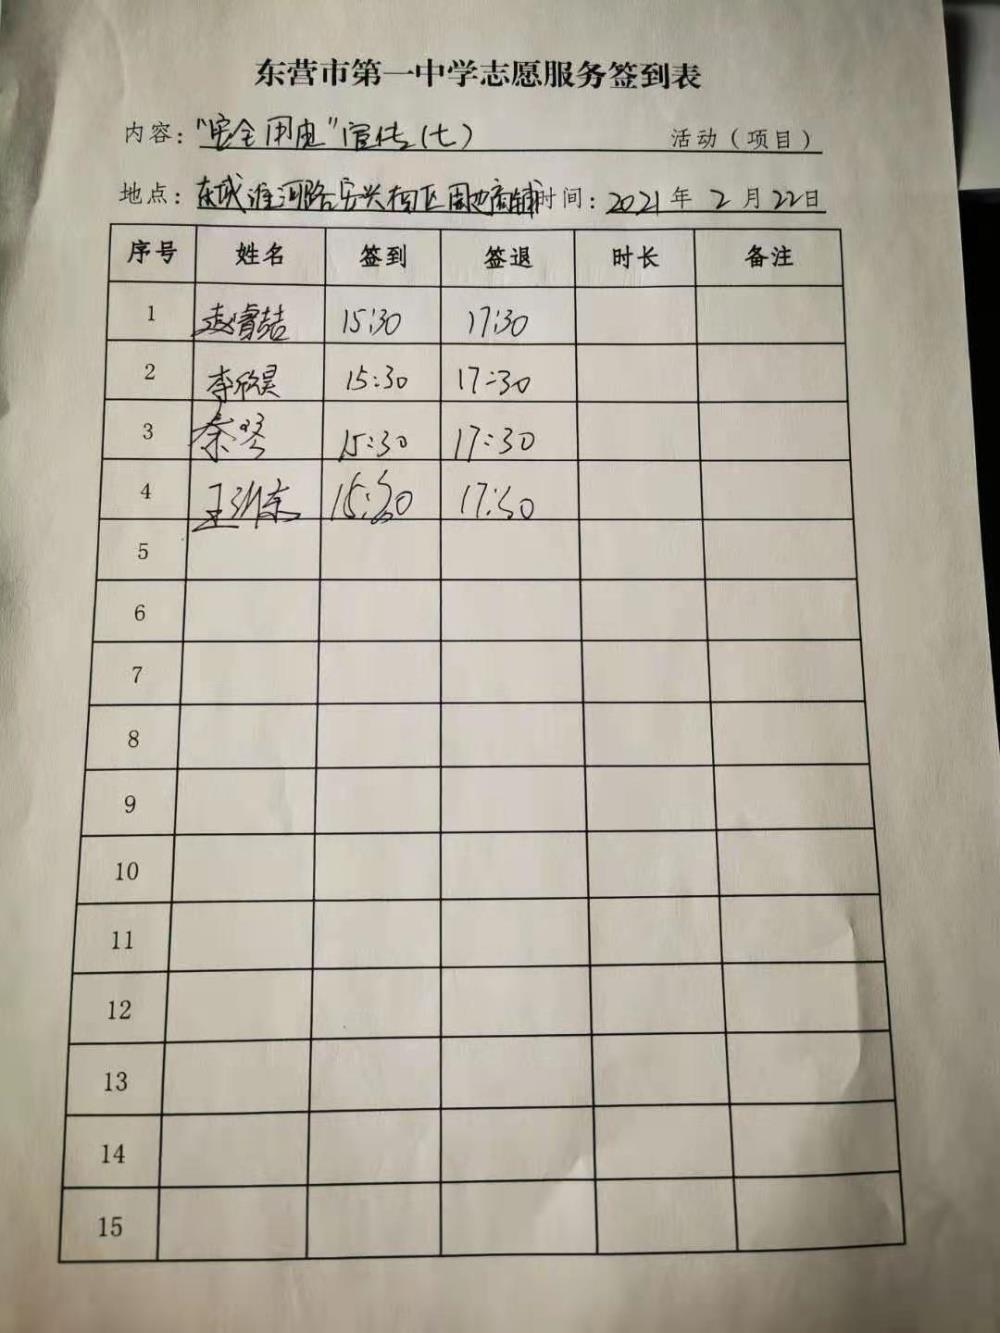 东营市第一中学志愿服务签到表
内容："安全用电"宣传(七) 活动（项目）
地点：东城淮河路安兴南区周边商铺 时间：2021年2月22日
序号 姓名 签到 签退 时长 备注
1 赵睿喆 15:30 17:30
2 李欣昊 15:30 17:30
3 秦坚 15:30 17:30
4 王 15:30 17:30
5
6
7
8
9
10
11
12
13
14
15